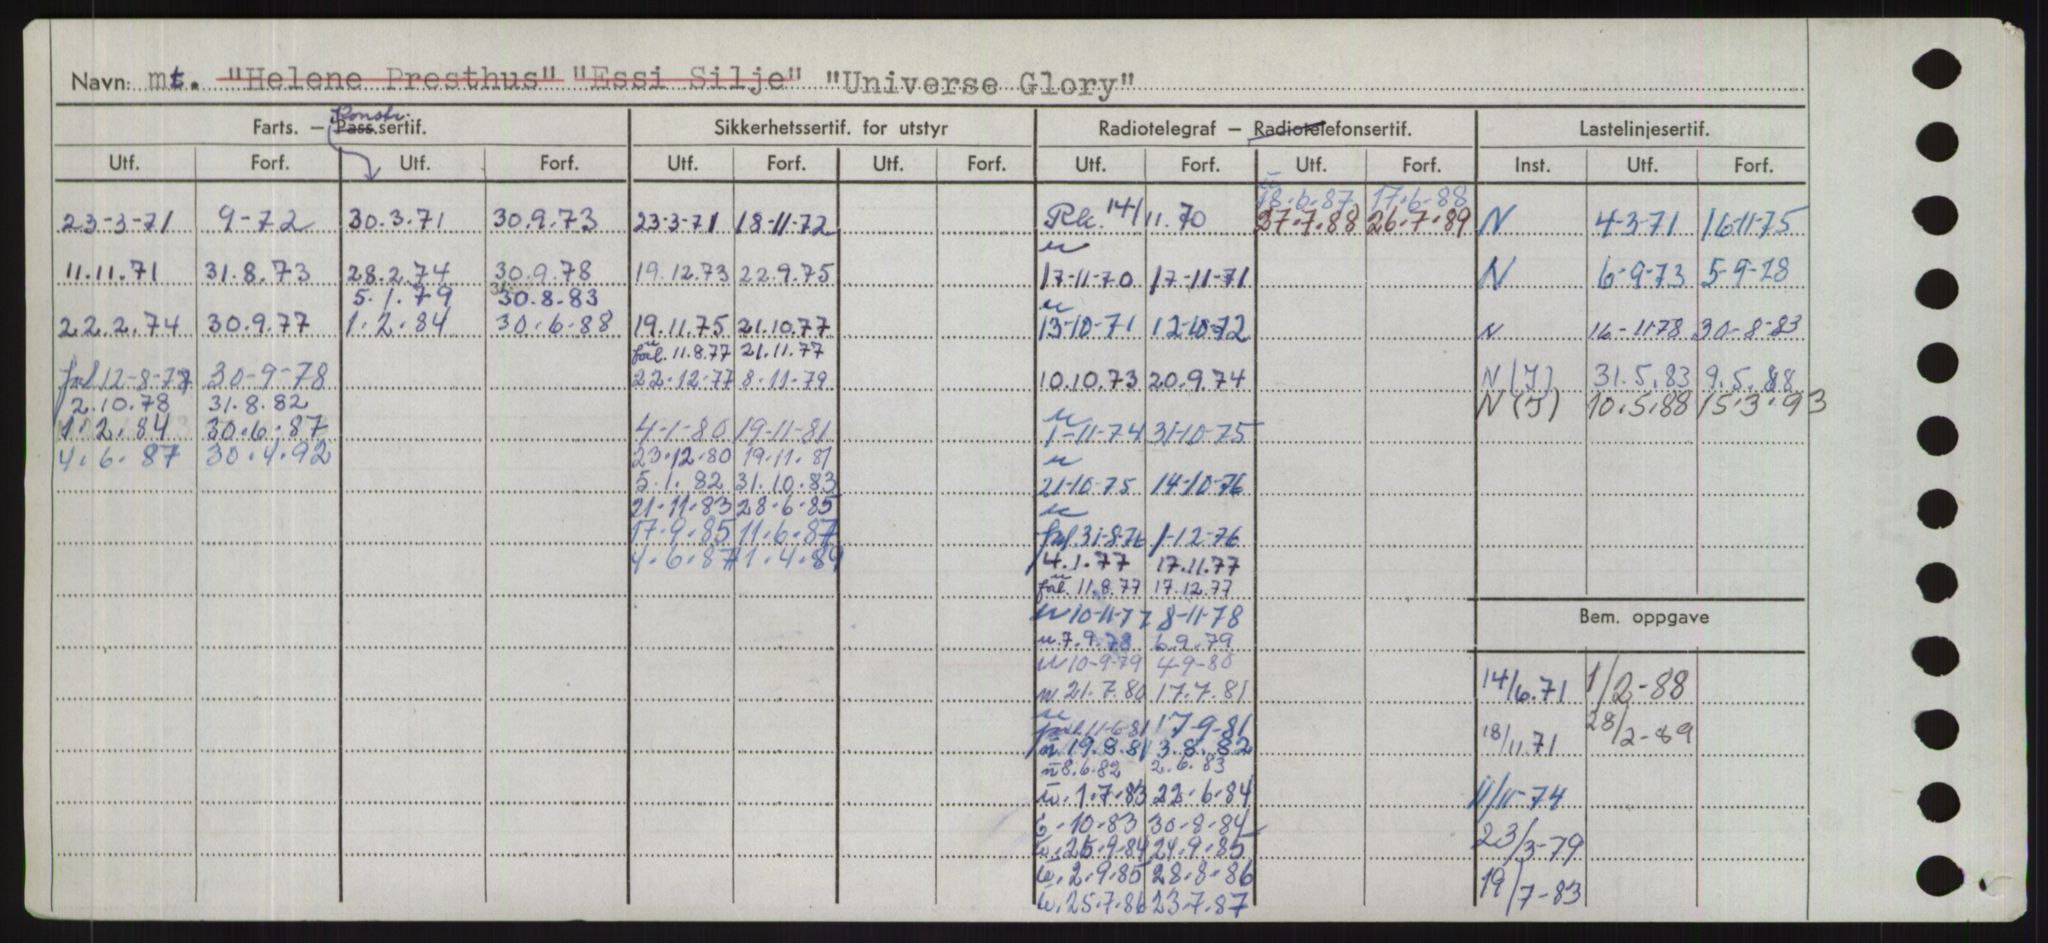 Navn: mt. "Helene Presthus" "Essi Silje" "Universe Glory"
Konstr.
Farts. — Pass.sertif. Sikkerhetssertif. for utstyr Radiotelegraf — Radiotelefonsertif. Lastelinjesertif.
Utf. Forf. Utf. Forf. Utf. Forf. Utf. Forf. Utf. Forf. Utf. Forf. Inst. Utf. Forf.
18.6.87 17.6.88
23-3-71 9-72 30.3.71 30.9.73 23-3-71 18-11-72 14/11.70 27.7.88 26.7.89 N 4-3-71 16-11-75
11.11.71 31.8.73 28.2.74 30.9.78 19.12.73 22.9.75 17-11-70 17-11-71 N 6-9-73 5-9-78
5.1.79 30.8.83
22.2.74 30.9.77 1.2.84 30.6.88 19.11.75 21.10.77 13-10-71 12-10-72 N 16-11-78 30-8-83
11.8.77 21.11.77
12-8-77 30-9-78 22-12-77 8-11-79 10.10.73 20.9.74 N(J) 31.5.83 9.5.88
2.10.78 31.8.82 N(J) 10.5.88 15.3.93
1.2.84 30.6.87 4-1-80 19-11-81 1-11-74 31-10-75
4.6.87 30.4.92 23.12.80 19.11.81
5.1.82 31.10.83 21-10-75 14-10-76
21.11.83 28.6.85
17.9.85 11.6.87 31-8-76 1-12-76
4.6.87 1.4.89 4.1.77 17.11.77
11.8.77 17.12.77
10-11-77 8-11-78 Bem. oppgave
7.9.78 6.9.79
10-9-79 4-9-80
21.7.80 17.7.81 14/6.71 1/2-88
11-6-81 17-9-81 28/2-89
19.8.81 3.8.82 18/11.71
8.6.82 2.6.83
1.7.83 22.6.84 11/11-74
10.83 30.8.84
25.9.84 24.9.85 23/3-79
2.9.85 28.8.86
25.7.86 23.7.87 19/7-83